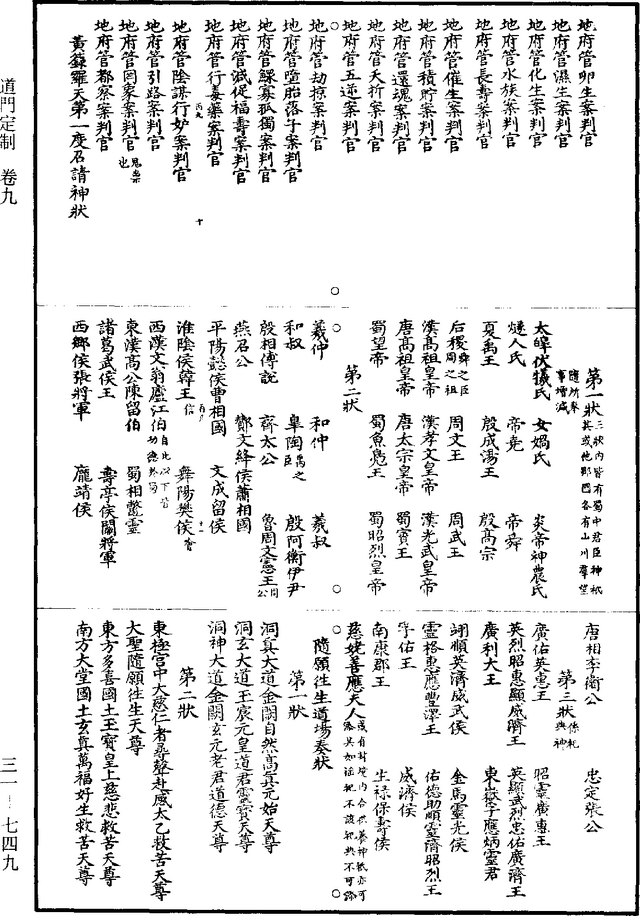 地府管卵生案判官
地府管濕生案判官
地府管化生案判官
地府管水族案判官
地府管長壽案判官
地府管催生案判官
地府管積貯案判官
地府管還魂案判官
地府管夭折案判官
地府管五逆案判官
地府管劫掠案判官
地府管墮胎落子案判官
地府管鰥寡孤獨案判官
地府管減促福壽案判官
地府管行毒藥案判官
地府管陰謀行妒案判官
地府管引路案判官
地府管罔象案判官
地府管都察案判官
黃籙羅天第一度召請神狀
第一狀
太皞伏犧氏 女媧氏 炎帝神農氏
燧人氏 帝堯 帝舜
夏禹王 殷成湯王 殷高宗
后稷舜之臣周之祖 周文王 周武王
漢高祖皇帝 漢孝文皇帝 漢光武皇帝
唐高祖皇帝 唐太宗皇帝 蜀蠶王
蜀望帝 蜀魚鳧王 蜀昭烈皇帝
第二狀
羲仲 和仲 羲叔
和叔 皐陶禹之臣 殷阿衡伊尹
殷相傅說 齊太公 魯周文憲王周公
燕召公 酇文終侯蕭相國
平陽懿侯曹相國 文成留侯
淮陰侯韓王信 舞陽樊侯噲
西漢文翁廬江伯
東漢高公陳留伯 蜀相鼈靈
諸葛武侯王 壽亭侯關將軍
西鄉侯張將軍 龐靖侯
唐相李衛公 忠定張公
第三狀係祀典神
廣佑英惠王 昭靈廣惠王
英烈昭惠顯威濟王 英顯武烈忠佑廣濟王
廣利大王 東嶽子應炳靈君
翊順英濟威武侯 金馬靈光侯
靈格惠應豐澤王 佑德助順靈濟昭烈王
孚佑王 威濟侯
南康郡王 生祿保壽侯
慈姥善應夫人
隨願往生道場奏狀
第一狀
洞真大道金闕自然高真元始天尊
洞玄大道玉宸元皇道君靈寶天尊
洞神大道金闕玄元老君道德天尊
第二狀
東極宮中大慈仁者尋聲赴感太乙救苦天尊
大聖隨願往生天尊
東方多喜國土玉寶皇上慈悲救苦天尊
南方大堂國土玄真萬福好生救苦天尊
道門定制 卷九
三一—七四九